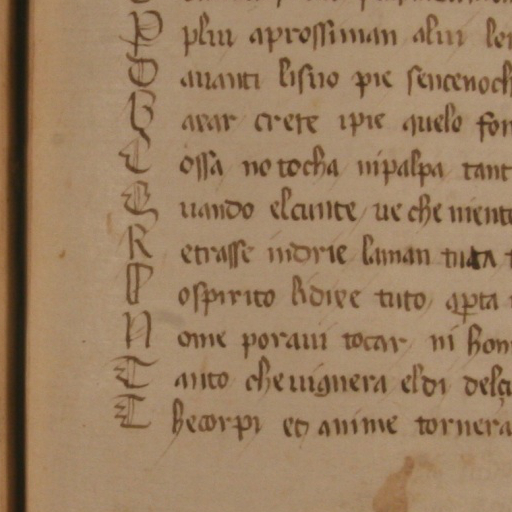 P plui aprossiman alui
D auanti lisuo pie sencenoch
B arar crete ipie quelo fon
C ossa no tocha ni palpa tant
G uando elcunte ue che niente
R etrasse indrie laman tuta
P ospirito lidire tuto qpta
N ome poraui tocar ni hom
T anto che uignera el di delçu
T hecorpi et anime tornera